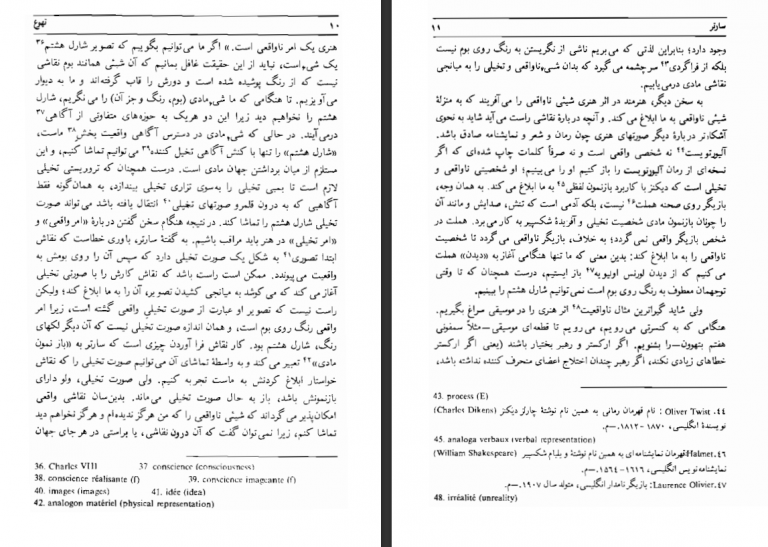 ۱۰ تهوع
هنری یک امر ناواقعی است.» اگر ما می‌توانیم بگوییم که تصویر شارل هشتم۳۶
یک شیء است، نباید از این حقیقت غافل بمانیم که آن شیئی همانند بوم نقاشی
نیست که از رنگ پوشیده شده است و دورش را قاب گرفته‌اند و ما به دیوار
می‌آویزیم. تا هنگامی که ما شیء مادی (بوم، رنگ و جز آن) را می‌نگریم، شارل
هشتم را نخواهیم دید زیرا این دو هریک به حوزه‌های متفاوتی از آگاهی۳۷
درمی‌آیند. در حالی که شیء مادی در دسترس آگاهی واقعیت بخش۳۸ ماست،
«شارل هشتم» را تنها با کنش آگاهی تخیل کننده۳۹ می‌توانیم تماشا کنیم، و این
مستلزم از میان برداشتن جهان مادی است. درست همچنان که تروریستی تخیلی
لازم است تا بمبی تخیلی را به‌سوی تزاری تخیلی بیندازد، به همان‌گونه فقط
آگاهیی که به درون قلمرو صورتهای تخیلی۴۰ انتقال یافته باشد می‌تواند صورت
تخیلی شارل هشتم را تماشا کند. در نتیجه هنگام سخن گفتن دربارهٔ «امر واقعی» و
«امر تخیلی» در هنر باید مراقب باشیم. به گفتهٔ سارتر، باوری خطاست که نقاش
ابتدا تصوری۴۱ به شکل یک صورت تخیلی دارد که سپس آن را روی بومش به
واقعیت می‌پیوندد. ممکن است راست باشد که نقاش کارش را با صورتی تخیلی
آغاز می‌کند که می‌کوشد به میانجی کشیدن تصویر، آن را به ما ابلاغ کند؛ ولیکن
راست نیست که تصویر او عبارت از صورت تخیلیِ واقعی گشته است، زیرا امر
واقعی رنگ روی بوم است، و همان اندازه صورت تخیلی نیست که آن دیگر لکهای
رنگ، شارل هشتم بود. کار نقاش فرا آوردن چیزی است که سارتر به «باز نمون
مادی»۴۲ تعبیر می‌کند و به واسطهٔ تماشای آن می‌توانیم صورت تخیلی را که نقاش
خواستار ابلاغ کردنش به ماست تجربه کنیم. ولی صورت تخیلی، ولو دارای
بازنمونش باشد، باز به حال صورت تخیلی می‌ماند. بدین‌سان نقاشی واقعی
امکان‌پذیر می‌گرداند که شیئی ناواقعی را که من هرگز ندیده‌ام و هرگز نخواهم دید
تماشا کنم، زیرا نمی‌توان گفت که آن درون نقاشی، یا براستی در هر جای جهان
36. Charles VIII 37. conscience (consciousness)
38. conscience réalisante (f) 39. conscience imageante (f)
40. images (images) 41. idée (idea)
42. analogon matériel (physical representation)
سارتر ۱۱
وجود دارد؛ بنابراین لذتی که می‌بریم ناشی از نگریستن به رنگ روی بوم نیست
بلکه از فراگردی۴۳ سر چشمه می‌گیرد که بدان شیء ناواقعی و تخیلی را به میانجی
نقاشی مادی درمی‌یابیم.
به سخن دیگر، هنرمند در اثر هنری شیئی ناواقعی را می‌آفریند که به منزلهٔ
شیئی ناواقعی به ما ابلاغ می‌کند. و آنچه دربارهٔ نقاشی راست می‌آید شاید به نحوی
آشکارتر دربارهٔ دیگر صورتهای هنری چون رمان و شعر و نمایشنامه صادق باشد.
آلیورتویست۴۴ نه شخصی واقعی است و نه صرفاً کلمات چاپ شده‌ای که اگر
نسخه‌ای از رمان آلیورتویست را باز کنیم او را می‌بینیم؛ او شخصیتی ناواقعی و
تخیلی است که دیکنز با کاربرد بازنمون لفظی۴۵ به ما ابلاغ می‌کند. به همان وجه،
بازیگر روی صحنه هملت۴۶ نیست، بلکه آدمی است که تنش، صدایش و مانند آن
را چونان بازنمون مادی شخصیت تخیلی و آفریدهٔ شکسپیر به کار می‌برد. هملت در
شخص بازیگر واقعی نمی‌گردد؛ به خلاف، بازیگر ناواقعی می‌گردد تا شخصیت
ناواقعی را به ما ابلاغ کند: بدین معنی که ما تنها هنگامی آغاز به «دیدن» هملت
می‌کنیم که از دیدن لورنس اولیویه۴۷ باز ایستیم، درست همچنان که تا وقتی
توجهمان معطوف به رنگ روی بوم است نمی‌توانیم شارل هشتم را ببینیم.
ولی شاید گیراترین مثال ناواقعیت۴۸ اثر هنری را در موسیقی سراغ بگیریم.
هنگامی که به کنسرتی می‌رویم، می‌رویم تا قطعه‌ای موسیقی—مثلاً سمفونی
هفتم بتهوون—را بشنویم. اگر ارکستر و رهبر بختیار باشند (یعنی اگر ارکستر
خطاهای زیادی نکند، اگر رهبر چندان اختلاج اعضای منحرف کننده نداشته باشد،
43. process (E)
۴۴. Oliver Twist : نام قهرمان رمانی به همین نام نوشتهٔ چارلز دیکنز (Charles Dikens)
نویسندهٔ انگلیسی، ۱۸۷۰-۱۸۱۲.—م.
45. analoga verbaux (verbal representation)
۴۶. Halmet:قهرمان نمایشنامه‌ای به همین نام نوشتهٔ و یلیام شکسپیر (William Shakespeare)
نمایشنامه‌نویس انگلیسی، ۱۶۱۶-۱۵۶۴.—م.
۴۷. Laurence Olivier: بازیگر نامدار انگلیسی، متولد سال ۱۹۰۷.—م.
48. irréalité (unreality)